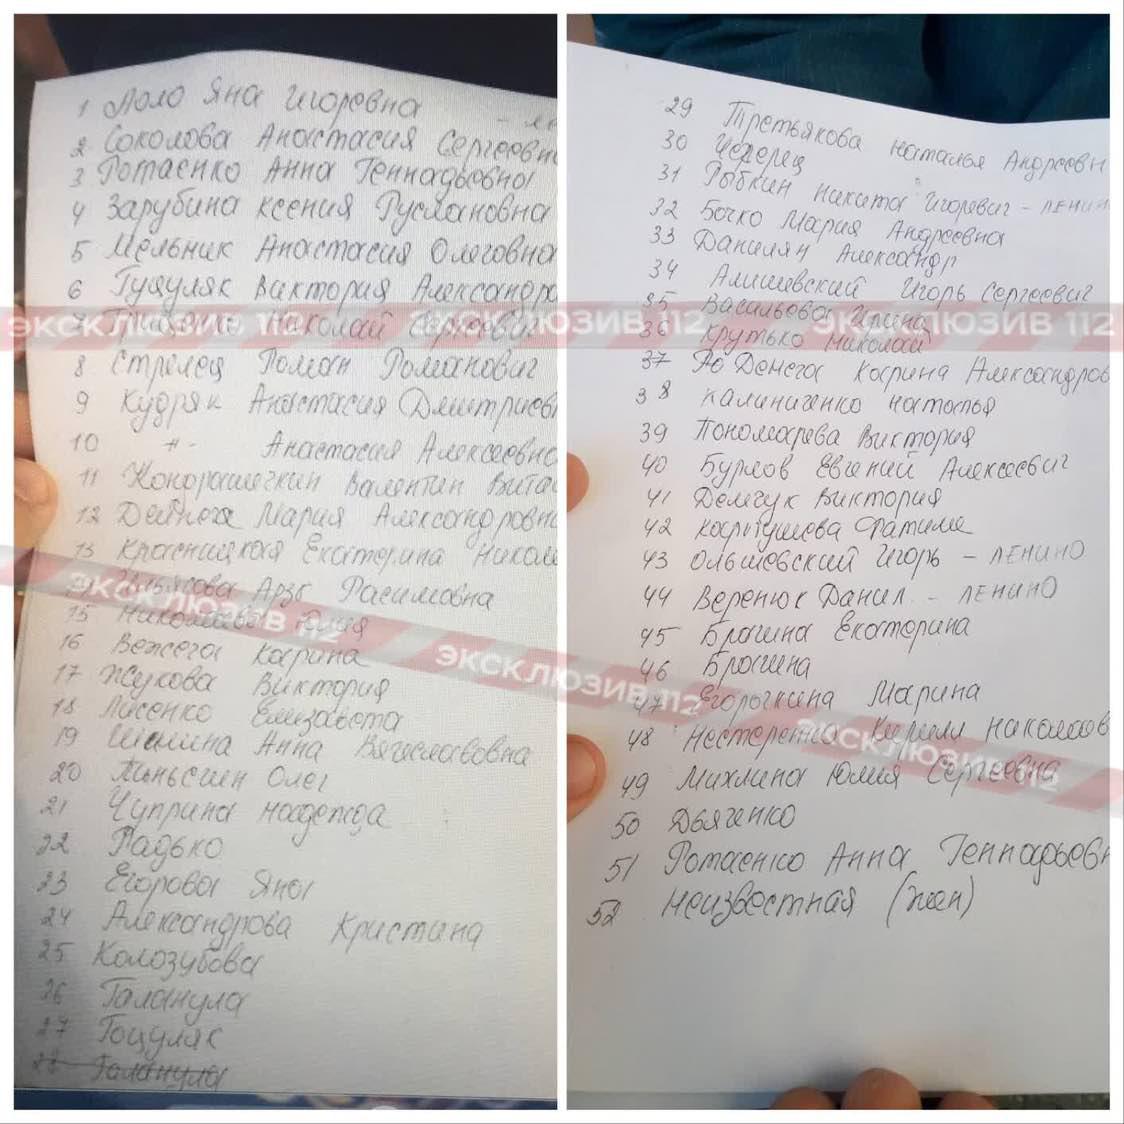 1 Лоло Яна Игоревна
2 Соколова Анастасия Сергеевн
3 Ротаенко Анна Геннадьевна
4 Зарубина Ксения Руслановна
5 Мельник Анастасия Олеговна
6 Гуцуляк Виктория Александро
7 Николай
8 Стрелец Роман Романович
9 Кудряк Анастасия Дмитриев
10 -"- Анастасия Алексеевна
11 Кондрашечкин Валентин Вита
12 Дейнега Мария Александровн
13 Красницкая Екатерина Никол
Ильясова Арзы Расимовна
15 Николаева Юлия
16 Вежега Карина
17 Жукова Виктория
18 Лисенко Елизавета
19 Шанина Анна Вячеславовна
20 Олег
21 Чуприна Надежда
22 Радько
23 Егорова Яна
24 Александрова Кристина
25 Колозубова
26 Галанула
27 Гоцуляк
28 Галанула
29 Третьякова Наталья Андреевн
30 Черец
31 Рыбкин Никита Игоревич - ЛЕНИН
32 Бочко Мария Андреевна
33 Данилян Александр
34 Алишевский Игорь Сергеевич
35 Васильева Ирина
36 Крутько Николай
37 Денега Карина Александров
38 Калиниченко Наталья
39 Пономарева Виктория
40 Бурлов Евгений Алексеевич
41 Демчук Виктория
42 Фатиме
43 Ольшевский Игорь - ЛЕНИНО
44 Веренюк Данил - ЛЕНИНО
45 Брагина Екатерина
46 Брагина
47 Егорочкина Марина
48 Нестеренко Кирилл Николаев
49 Михлина Юлия Сергеевна
50 Дьяченко
51 Ротаенко Анна Геннадьевн
52 Неизвестная (жен)
ЭКСКЛЮЗИВ 112
ЭКСКЛЮЗИВ 112
ЭКСКЛЮЗИВ 112
ЭКСКЛЮЗИВ 112
ЭКСКЛЮЗИВ 112
ЭКСКЛЮЗИВ 112